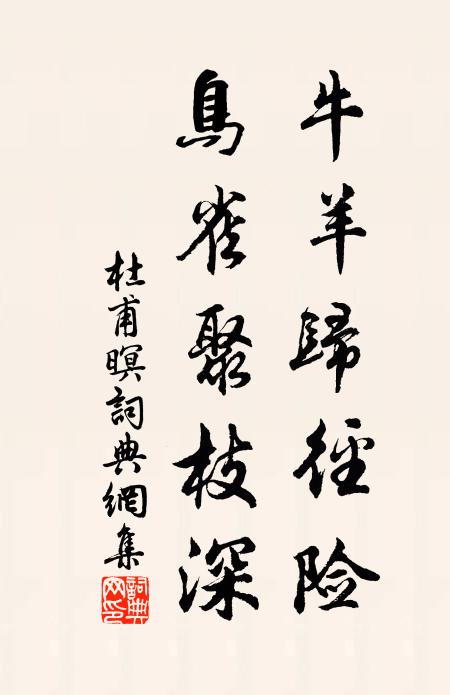 牛羊歸徑险
鳥雀聚枝深
杜甫暝詞典網集
詞典
网印